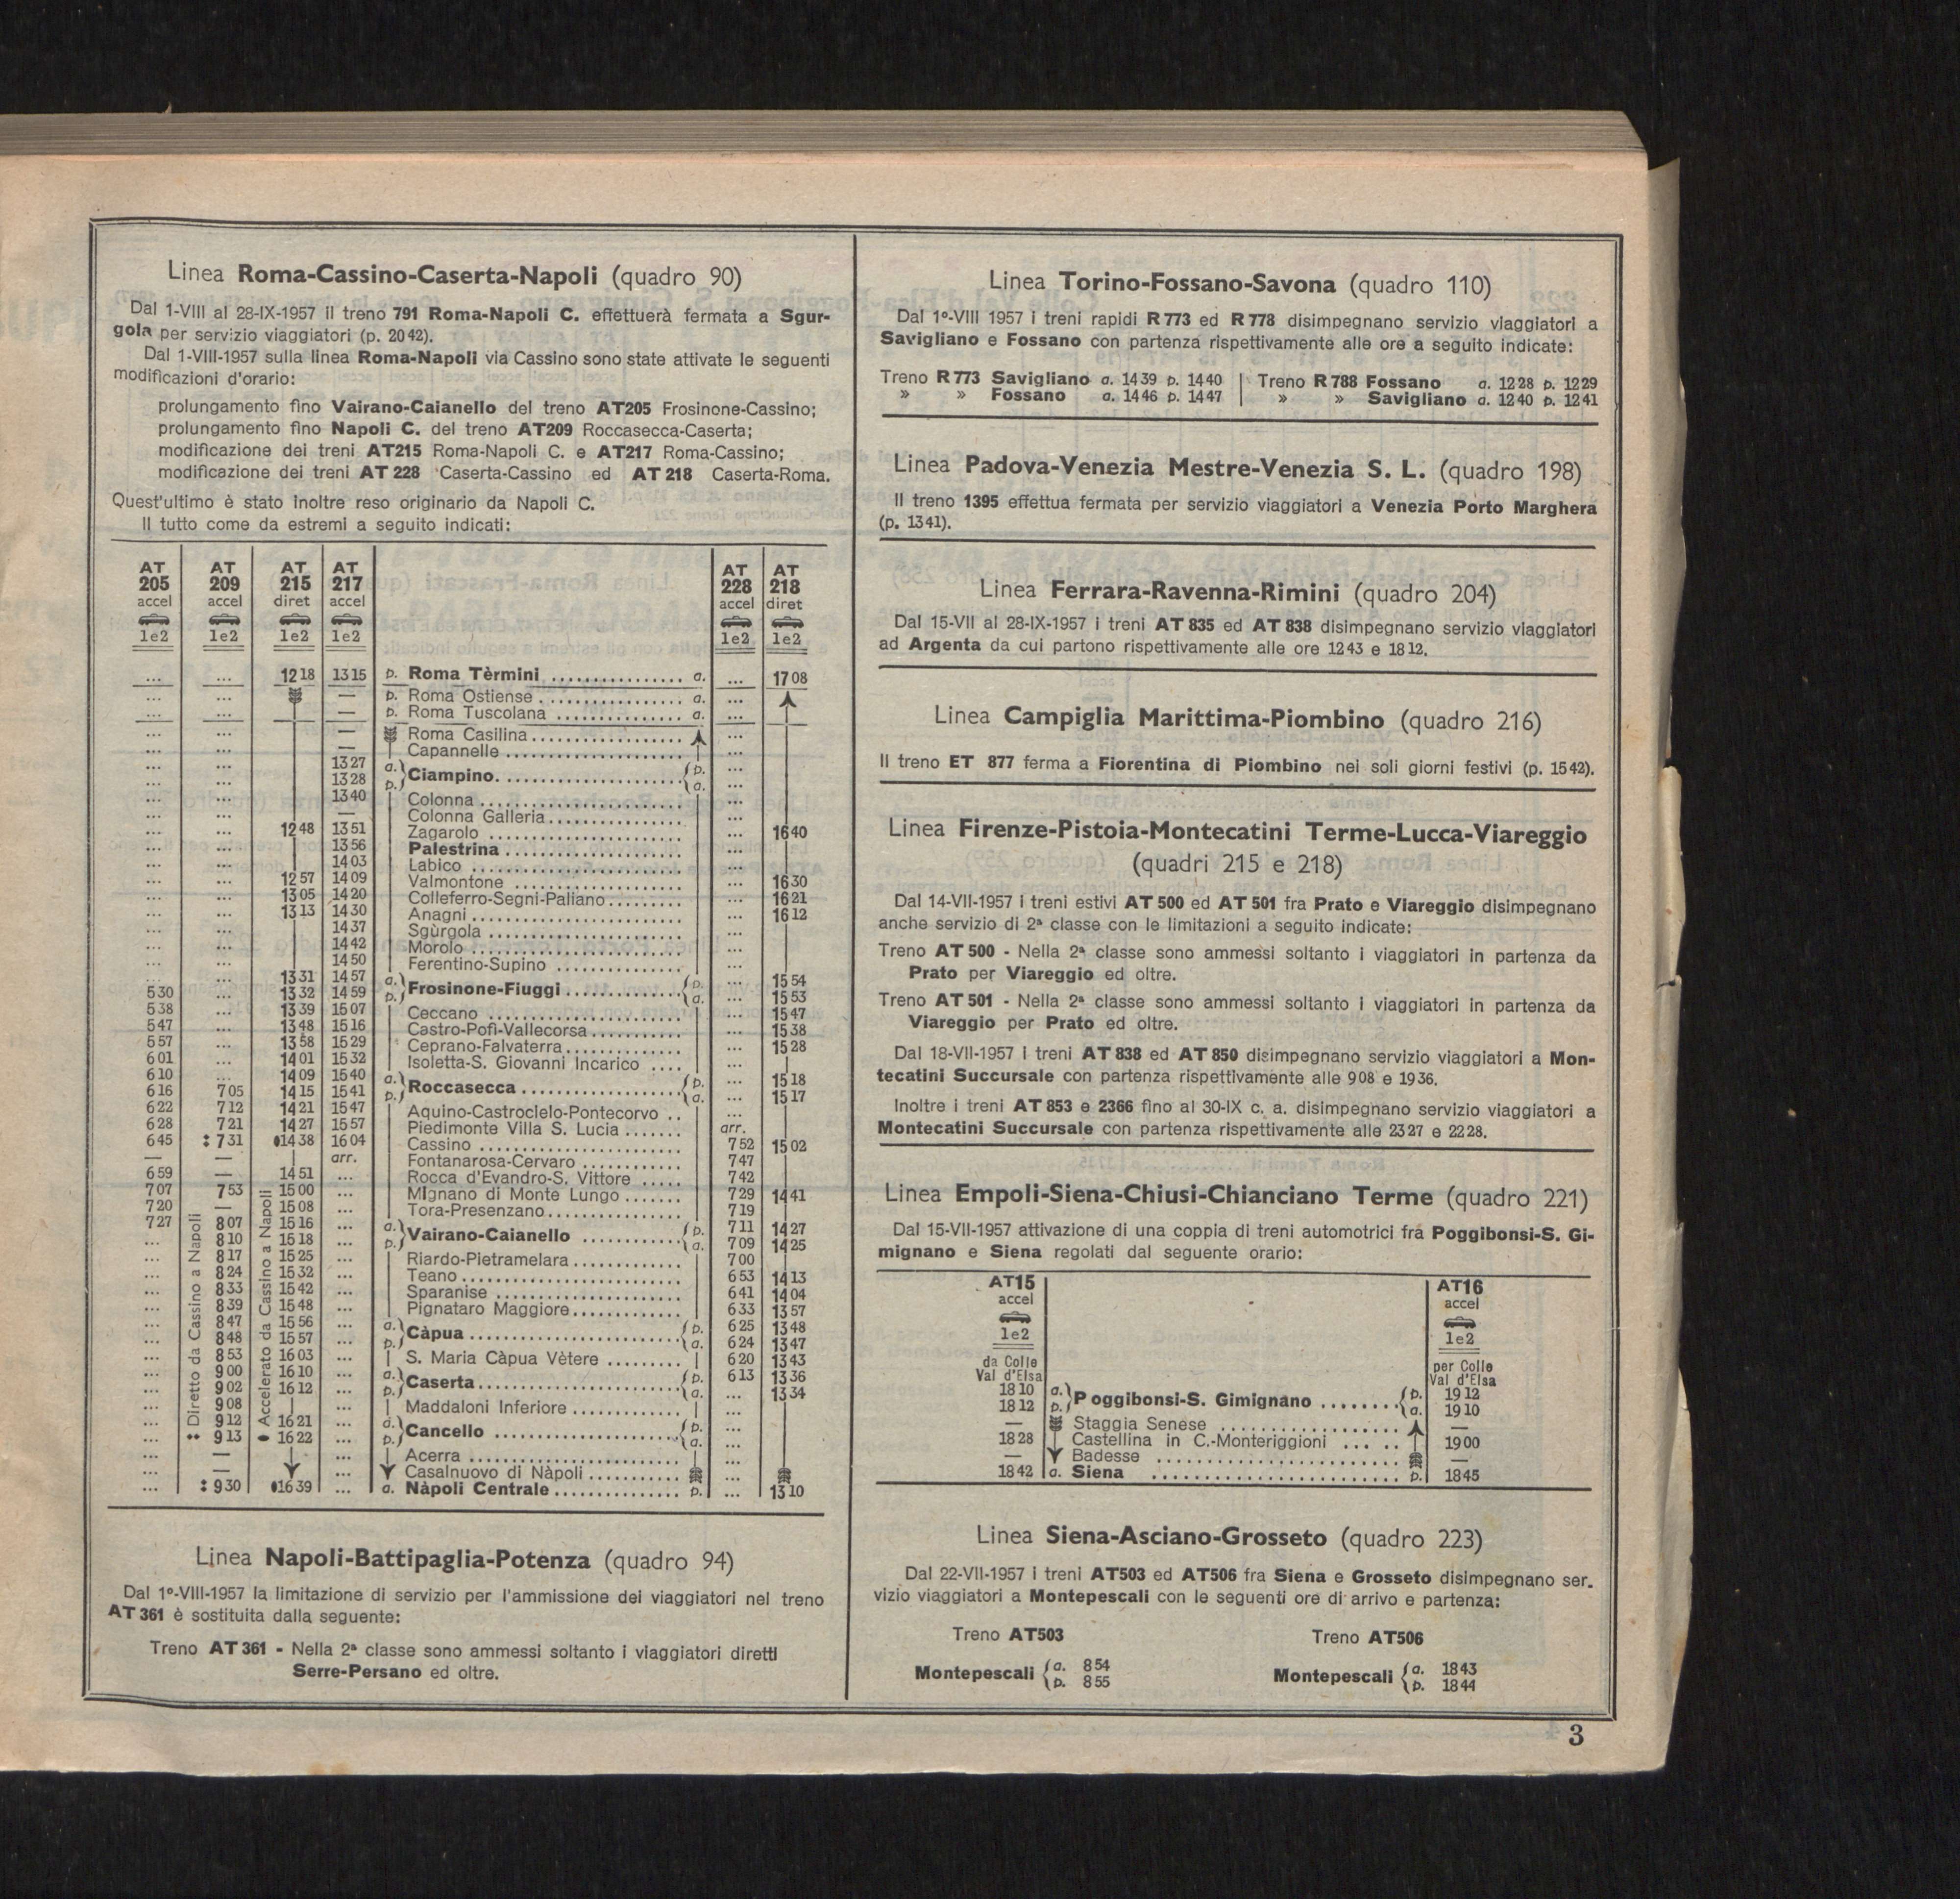 Linea Roma-Cassino-Caserta-Napoli (quadro 90)
Dal 1-VIII al 28-IX-1957 il treno 791 Roma-Napoli C. effettuerà fermata a Sgur-
gola per servizio viaggiatori (p. 2042).
Dal 1-VIII-1957 sulla linea Roma-Napoli via Cassino sono state attivate le seguenti
modificazioni d'orario:
prolungamento fino Vairano-Caianello del treno AT205 Frosinone-Cassino;
prolungamento fino Napoli C. del treno AT209 Roccasecca-Caserta;
modificazione dei treni AT215 Roma-Napoli C. e AT217 Roma-Cassino;
modificazione dei treni AT 228 Caserta-Cassino ed AT 218 Caserta-Roma.
Quest'ultimo è stato inoltre reso originario da Napoli C.
Il tutto come da estremi a seguito indicati:
AT AT AT AT AT AT
205 209 215 217 228 218
accel accel diret accel accel diret
1e2 1e2 1e2 1e2 1e2 1e2
... ... 1218 1315 p. Roma Tèrmini ................ a. ... 1708
... ... — p. Roma Ostiense ................ a. ...
... ... — p. Roma Tuscolana ............. a. ...
... ... — Roma Casilina ................... ...
... ... — Capannelle ..................... ...
... ... 1327 a. } Ciampino ..................... { p. ...
... ... 1328 p. a. ...
... ... 1340 Colonna ........................ ...
— Colonna Galleria ................
... ... 1248 1351 Zagarolo ....................... ... 1640
... ... 1356 Palestrina ..................... ...
... ... 1403 Labico ......................... ...
... ... 1257 1409 Valmontone .................... ... 1630
... ... 1305 1420 Colleferro-Segni-Paliano ......... ... 1621
... ... 1313 1430 Anagni ......................... ... 1612
... ... 1437 Sgùrgola ....................... ...
... ... 1442 Morolo ......................... ...
... ... 1450 Ferentino-Supino ............... ...
... ... 1331 1457 a. } Frosinone-Fiuggi ............. { p. ... 1554
530 ... 1332 1459 p. a. ... 1553
538 ... 1339 1507 Ceccano ........................ ... 1547
547 ... 1348 1516 Castro-Pofi-Vallecorsa ........... ... 1538
557 ... 1358 1529 Ceprano-Falvaterra .............. ... 1528
601 ... 1401 1532 Isoletta-S. Giovanni Incarico .... ...
610 ... 1409 1540 a. } Roccasecca ................... { p. ... 1518
616 705 1415 1541 p. a. ... 1517
622 712 1421 1547 Aquino-Castrocielo-Pontecorvo .. ...
628 721 1427 1557 Piedimonte Villa S. Lucia ....... arr.
645 731 1438 1604 Cassino ........................ 752 1502
— — arr. Fontanarosa-Cervaro ............ 747
659 — 1451 ... Rocca d'Evandro-S. Vittore ..... 742
707 753 1500 ... Mignano di Monte Lungo ....... 729 1441
720 — 1508 ... Tora-Presenzano ................ 719
727 807 1516 ... a. } Vairano-Caianello ............ { p. 711 1427
... 810 1518 ... p. a. 709 1425
... 817 1525 ... Riardo-Pietramelara ............. 700
... 824 1532 ... Teano .......................... 653 1413
... 833 1542 ... Sparanise ...................... 641 1404
... 839 1548 ... Pignataro Maggiore .............. 633 1357
... 847 1556 ... a. } Càpua ....................... { p. 625 1348
... 848 1557 ... p. a. 624 1347
... 853 1603 ... S. Maria Càpua Vètere ......... 620 1343
... 900 1610 ... a. } Caserta ...................... { p. 613 1336
... 902 1612 ... p. a. ... 1334
... 908 ... Maddaloni Inferiore ............. ...
... 912 1621 ... a. } Cancello ..................... { p. ...
... 913 1622 ... p. a. ...
... — ... Acerra ......................... ...
... — ... Casalnuovo di Nàpoli ............ ...
... 930 1639 ... a. Nàpoli Centrale ............... p. ... 1310
Diretto da Cassino a Napoli
Accelerato da Cassino a Napoli
Linea Napoli-Battipaglia-Potenza (quadro 94)
Dal 1º-VIII-1957 la limitazione di servizio per l'ammissione dei viaggiatori nel treno
AT 361 è sostituita dalla seguente:
Treno AT 361 - Nella 2ª classe sono ammessi soltanto i viaggiatori diretti
Serre-Persano ed oltre.
Linea Torino-Fossano-Savona (quadro 110)
Dal 1º-VIII 1957 i treni rapidi R 773 ed R 778 disimpegnano servizio viaggiatori a
Savigliano e Fossano con partenza rispettivamente alle ore a seguito indicate:
Treno R 773 Savigliano a. 1439 p. 1440 | Treno R 788 Fossano a. 1228 p. 1229
» » Fossano a. 1446 p. 1447 | » » Savigliano a. 1240 p. 1241
Linea Padova-Venezia Mestre-Venezia S. L. (quadro 198)
Il treno 1395 effettua fermata per servizio viaggiatori a Venezia Porto Marghera
(p. 1341).
Linea Ferrara-Ravenna-Rimini (quadro 204)
Dal 15-VII al 28-IX-1957 i treni AT 835 ed AT 838 disimpegnano servizio viaggiatori
ad Argenta da cui partono rispettivamente alle ore 1243 e 1812.
Linea Campiglia Marittima-Piombino (quadro 216)
Il treno ET 877 ferma a Fiorentina di Piombino nei soli giorni festivi (p. 1542).
Linea Firenze-Pistoia-Montecatini Terme-Lucca-Viareggio
(quadri 215 e 218)
Dal 14-VII-1957 i treni estivi AT 500 ed AT 501 fra Prato e Viareggio disimpegnano
anche servizio di 2ª classe con le limitazioni a seguito indicate:
Treno AT 500 - Nella 2ª classe sono ammessi soltanto i viaggiatori in partenza da
Prato per Viareggio ed oltre.
Treno AT 501 - Nella 2ª classe sono ammessi soltanto i viaggiatori in partenza da
Viareggio per Prato ed oltre.
Dal 18-VII-1957 i treni AT 838 ed AT 850 disimpegnano servizio viaggiatori a Mon-
tecatini Succursale con partenza rispettivamente alle 908 e 1936.
Inoltre i treni AT 853 e 2366 fino al 30-IX c. a. disimpegnano servizio viaggiatori a
Montecatini Succursale con partenza rispettivamente alle 2327 e 2228.
Linea Empoli-Siena-Chiusi-Chianciano Terme (quadro 221)
Dal 15-VII-1957 attivazione di una coppia di treni automotrici fra Poggibonsi-S. Gi-
mignano e Siena regolati dal seguente orario:
AT15 AT16
accel accel
1e2 1e2
da Colle per Colle
Val d'Elsa Val d'Elsa
1810 a. } Poggibonsi-S. Gimignano ........ { p. 1912
1812 p. a. 1910
— Staggia Senese .................. —
1828 Castellina in C.-Monteriggioni ... .. 1900
— Badesse ........................ —
1842 a. Siena ......................... p. 1845
Linea Siena-Asciano-Grosseto (quadro 223)
Dal 22-VII-1957 i treni AT503 ed AT506 fra Siena e Grosseto disimpegnano ser.
vizio viaggiatori a Montepescali con le seguenti ore di arrivo e partenza:
Treno AT503 Treno AT506
Montepescali { a. 854 Montepescali { a. 1843
p. 855 p. 1844
3